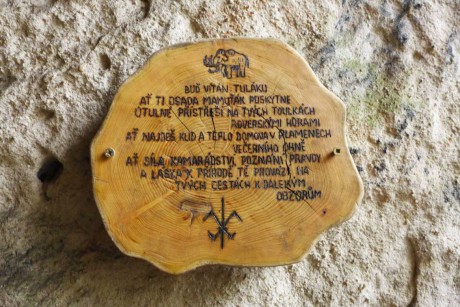 BUĎ VÍTÁN TULÁKU
AŤ TI OSADA MAMUŤÁK POSKYTNE
ÚTULNÉ PŘÍSTŘEŠÍ NA TVÝCH TOULKÁCH
ROVERSKÝMI HORAMI
AŤ NAJDEŠ KLID A TEPLO DOMOVA V PLAMENECH
VEČERNÍHO OHNĚ
AŤ SÍLA KAMARÁDSTVÍ, POZNÁNÍ PRAVDY
A LÁSKA K PŘÍRODĚ TĚ PROVÁZÍ NA
TVÝCH CESTÁCH K DALEKÝM
OBZORŮM